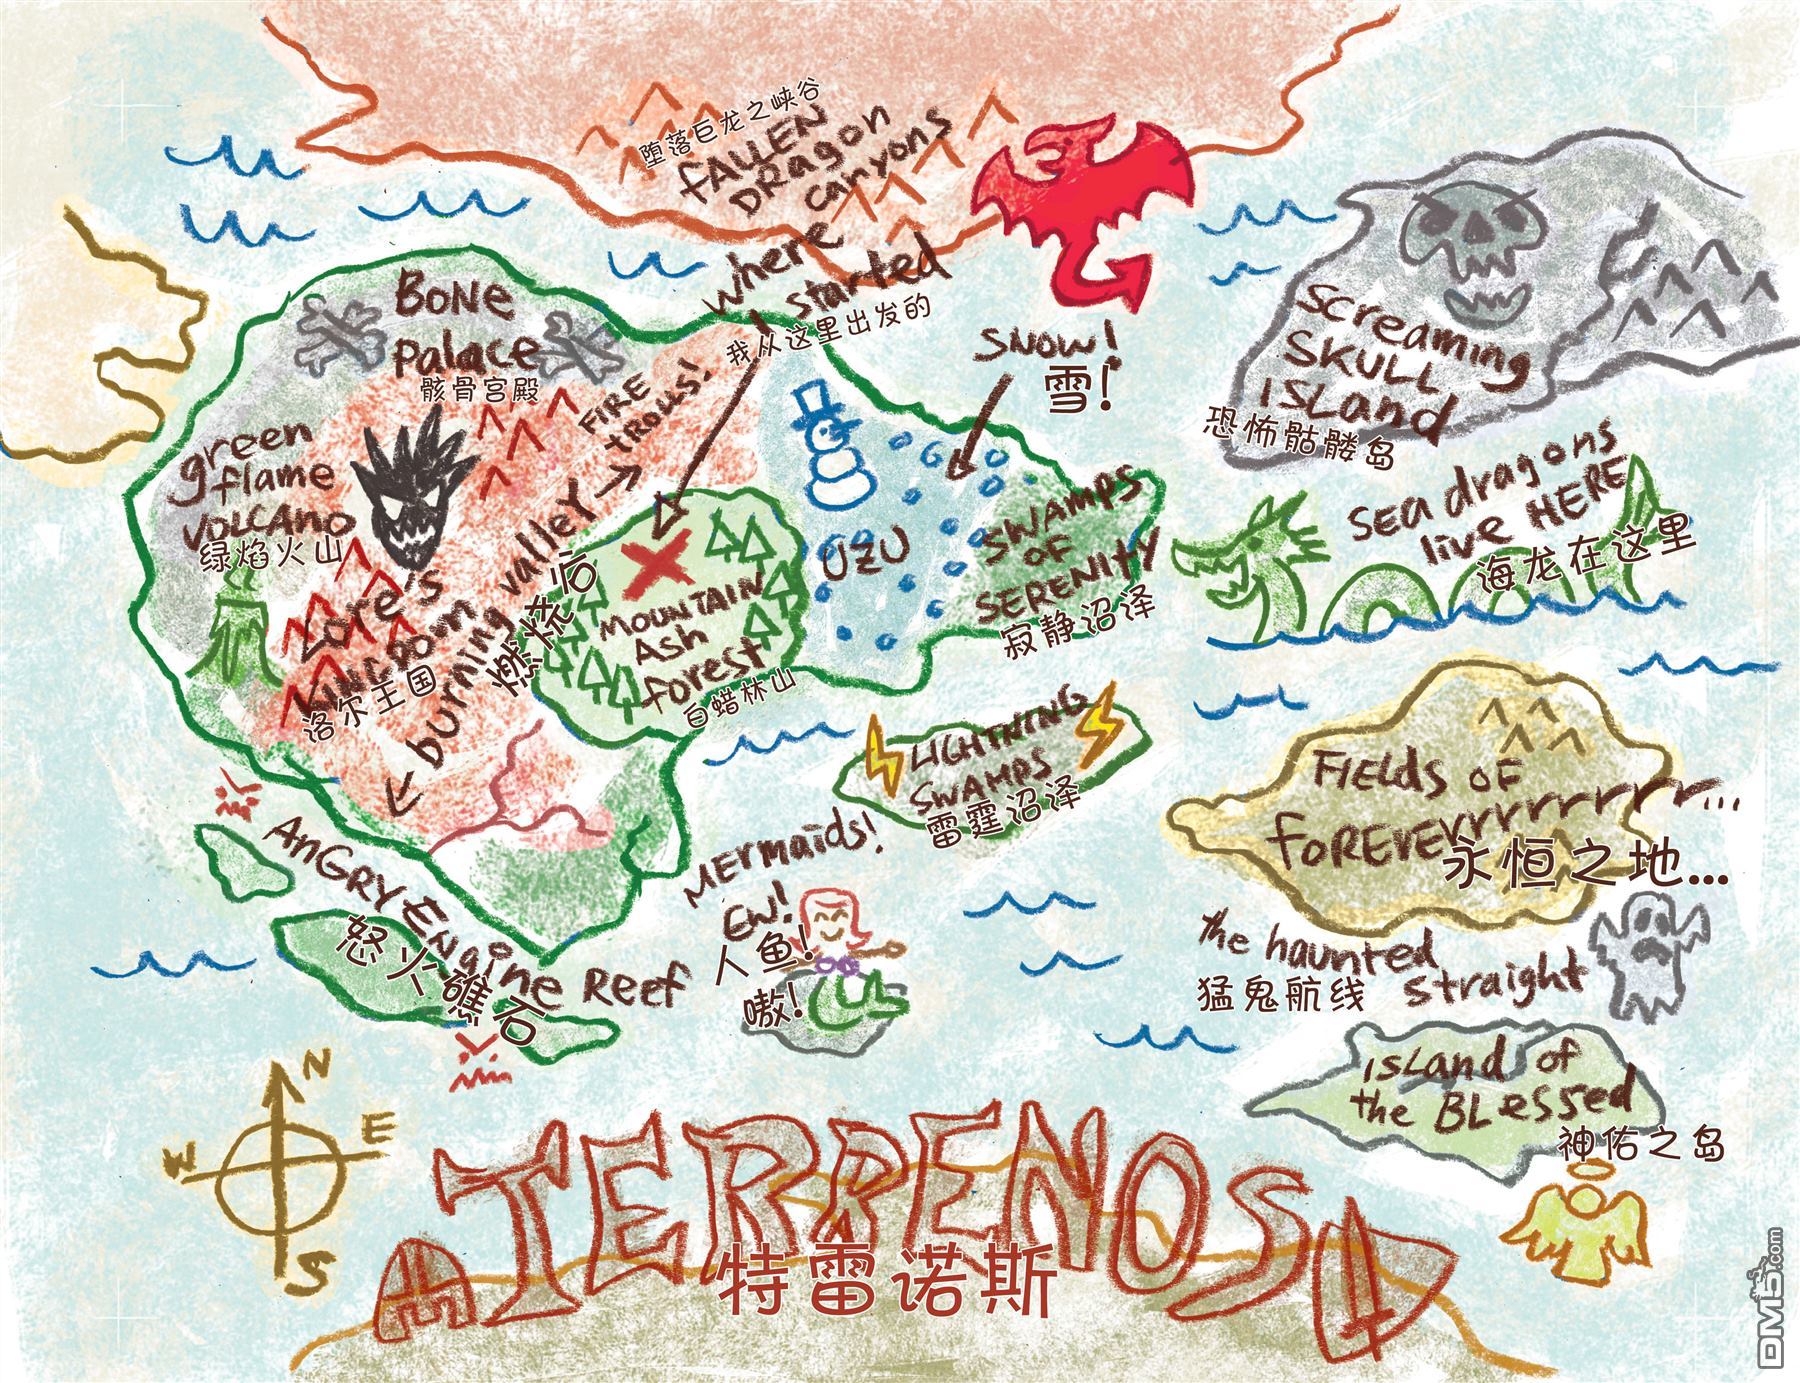 堕落巨龙之峡谷
FALLEN
DRagon
canyons
where
I started
我从这里出发的
BONE
Palace
骸骨宫殿
SNOW!
雪!
Screaming
SKULL
ISLand
恐怖骷髅岛
green
flame
VOLCANO
绿焰火山
FIRE
trolls!
Sea dragons
live HERE
海龙在这里
Lore's
KINGDOM
洛尔王国
burning valley
燃烧谷
MOUNTAIN
ASH
forest
白蜡林山
UZU
SWAMPS
OF
SERENITY
寂静沼泽
LIGHTNING
SWAMPS
雷霆沼泽
FIELDS OF
FOREVErrrrrrrr...
永恒之地...
ANGRY Engine Reef
怒火礁石
MERmaids!
EW!
人鱼!
嗷!
the haunted
straight
猛鬼航线
ISLand of
the BLessed
神佑之岛
N
W
E
S
TERRENOS
特雷诺斯
DM5.com